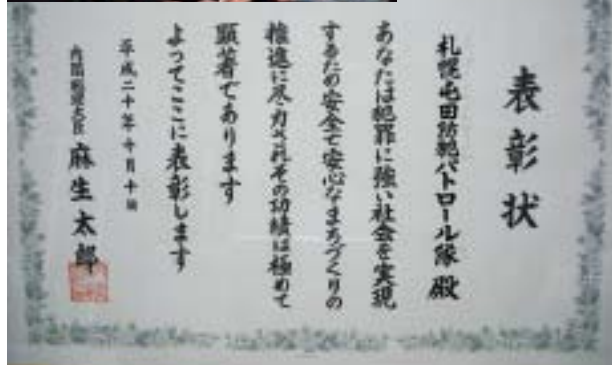 表彰状
札幌屯田防犯パトロール隊 殿
あなたは犯罪に強い社会を実現
するため安全で安心なまちづくりの
推進に尽力されその功績は極めて
顕著であります
よってここに表彰します
平成二十年十月十日
内閣総理大臣 麻生太郎